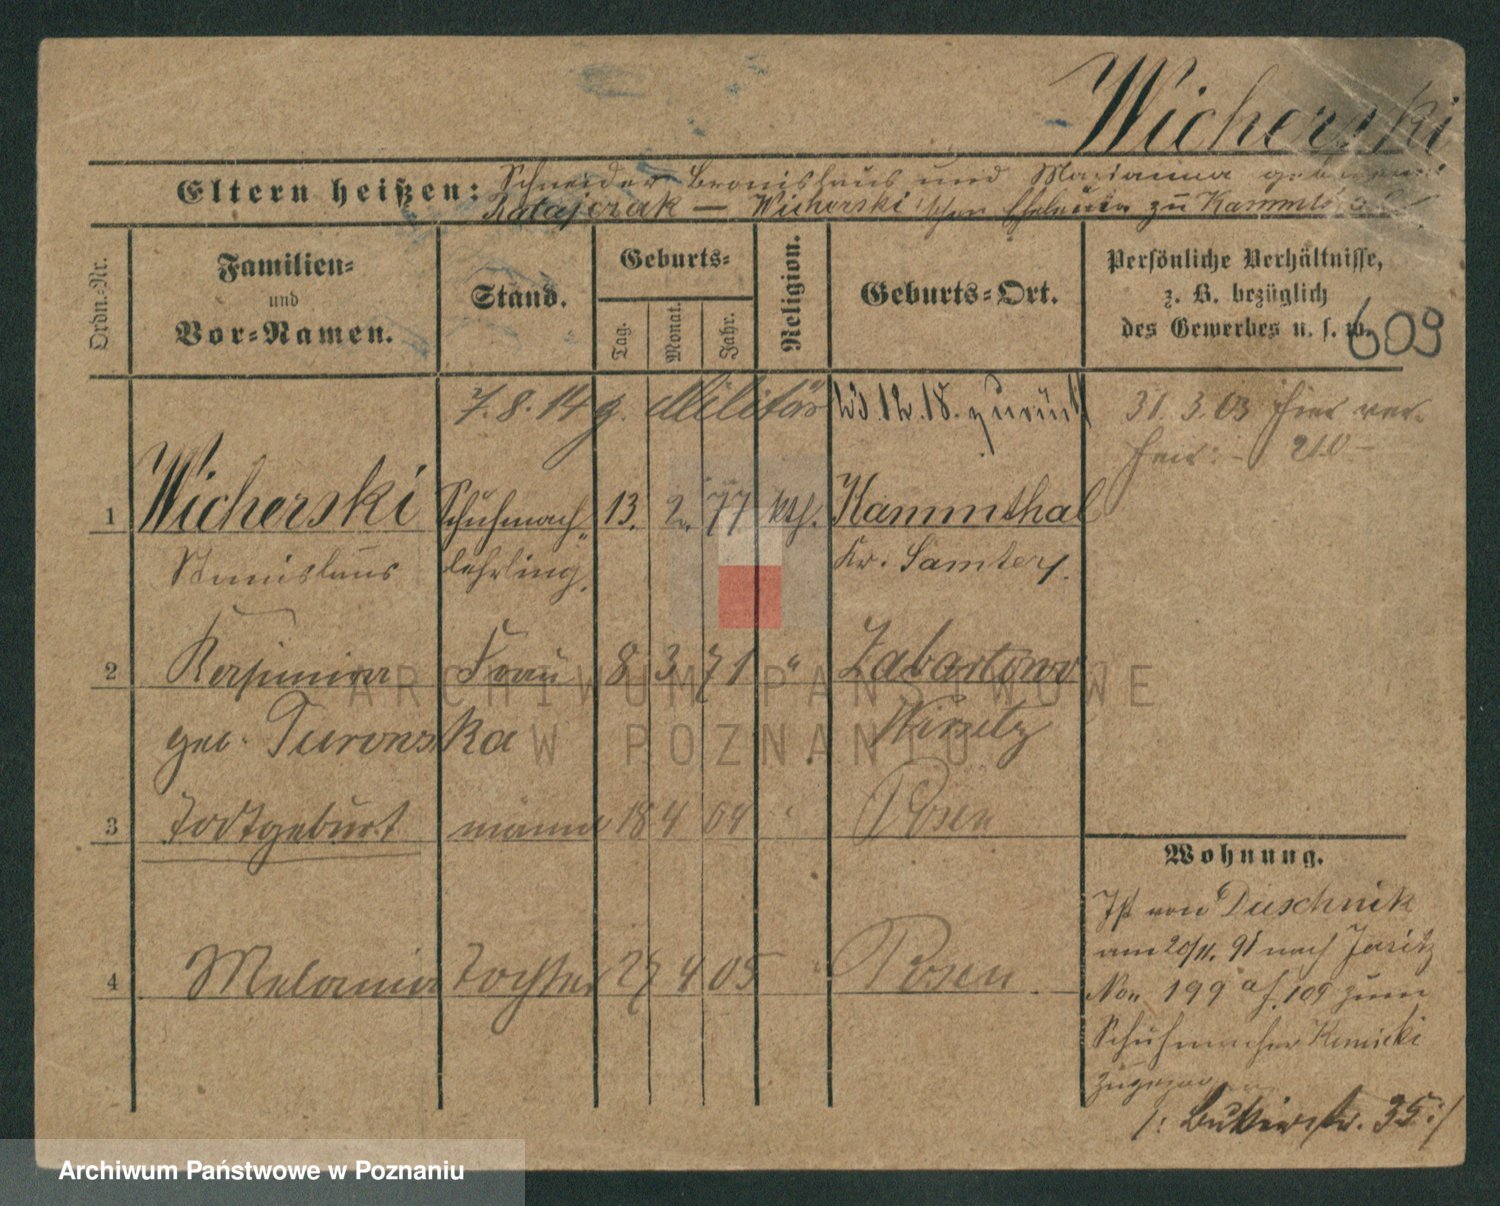 Wicherski
Eltern heißen: Schneider Bronislaus und Marianna geborene
Ratajczak — Wicherski'schen Eheleute zu Kammthal
Ordn.-Nr.
Familien-
und
Vor-Namen.
Stand.
Geburts-
Tag.
Monat.
Jahr.
Religion.
Geburts-Ort.
Persönliche Verhältnisse,
z. B. bezüglich
des Gewerbes u. s. w.
609
7.8.14 z. Militär 23.12.18. zurück
31.3.03 hier ver-
heir: - 210 -
1 Wicherski Schuhmach- 13. 2. 77 kth. Kammthal
Stanislaus lehrling. Kr. Samter.
2 Kasimira Frau 8 3 71 " Zabartowo
geb. Turonska Wirsitz
3 Todtgeburt männl 18 4 04 " Posen
4 Melania Tochter 27 4 05 " Posen
Wohnung.
Ist von Duschnik
am 20/11. 91 nach Jersitz
No. 199 a f. 109 zum
Schuhmacher
zugezogen
/: Bukerstr. 35 :/
ARCHIWUM PAŃSTWOWE
W POZNANIU
Archiwum Państwowe w Poznaniu